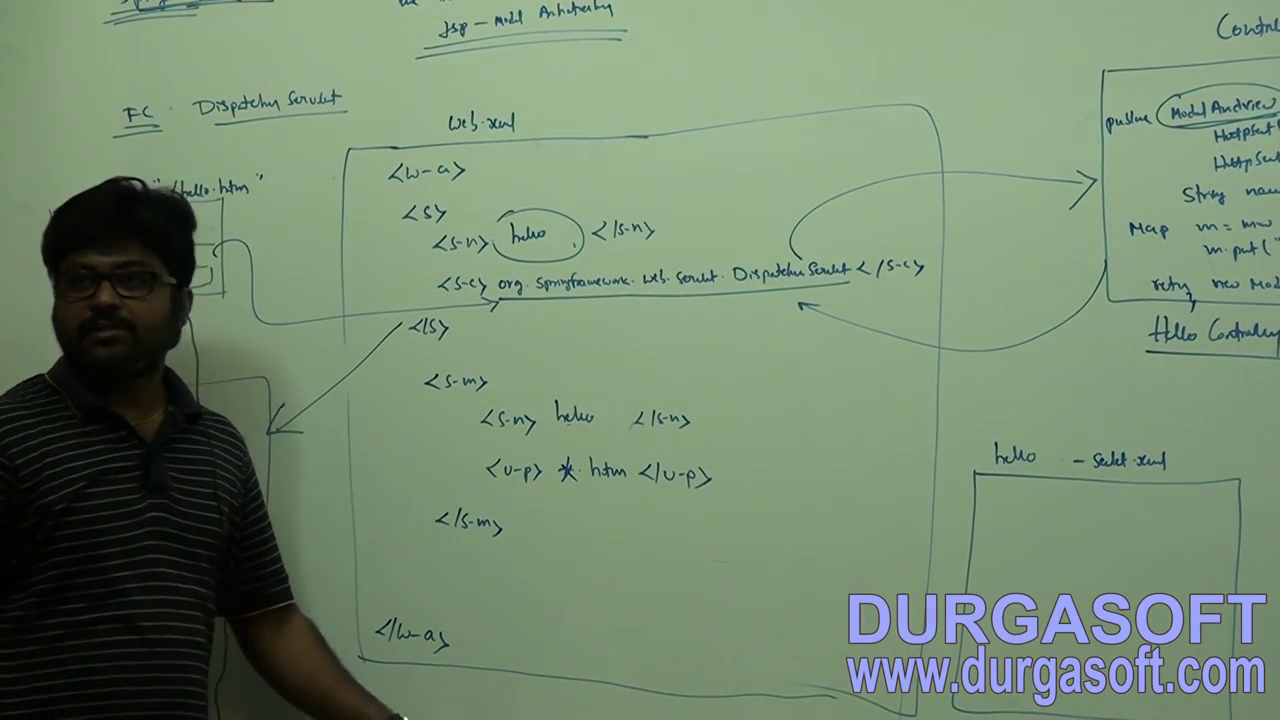 JSP - Model Architecture
FC . Dispatcher Servlet
"/hello.htm"
web.xml
<w-a>
<s>
<s-n> hello </s-n>
<s-c> org. springframework. web. servlet. Dispatcher Servlet </s-c>
</s>
<s-m>
<s-n> hello </s-n>
<u-p> *. htm </u-p>
</s-m>
</w-a>
Contro
public Model Andview
HttpServ
HttpSer
String nam
Map m = new
m.put("
return new Mod
Hello Controller
hello - servlet.xml
DURGASOFT
www.durgasoft.com